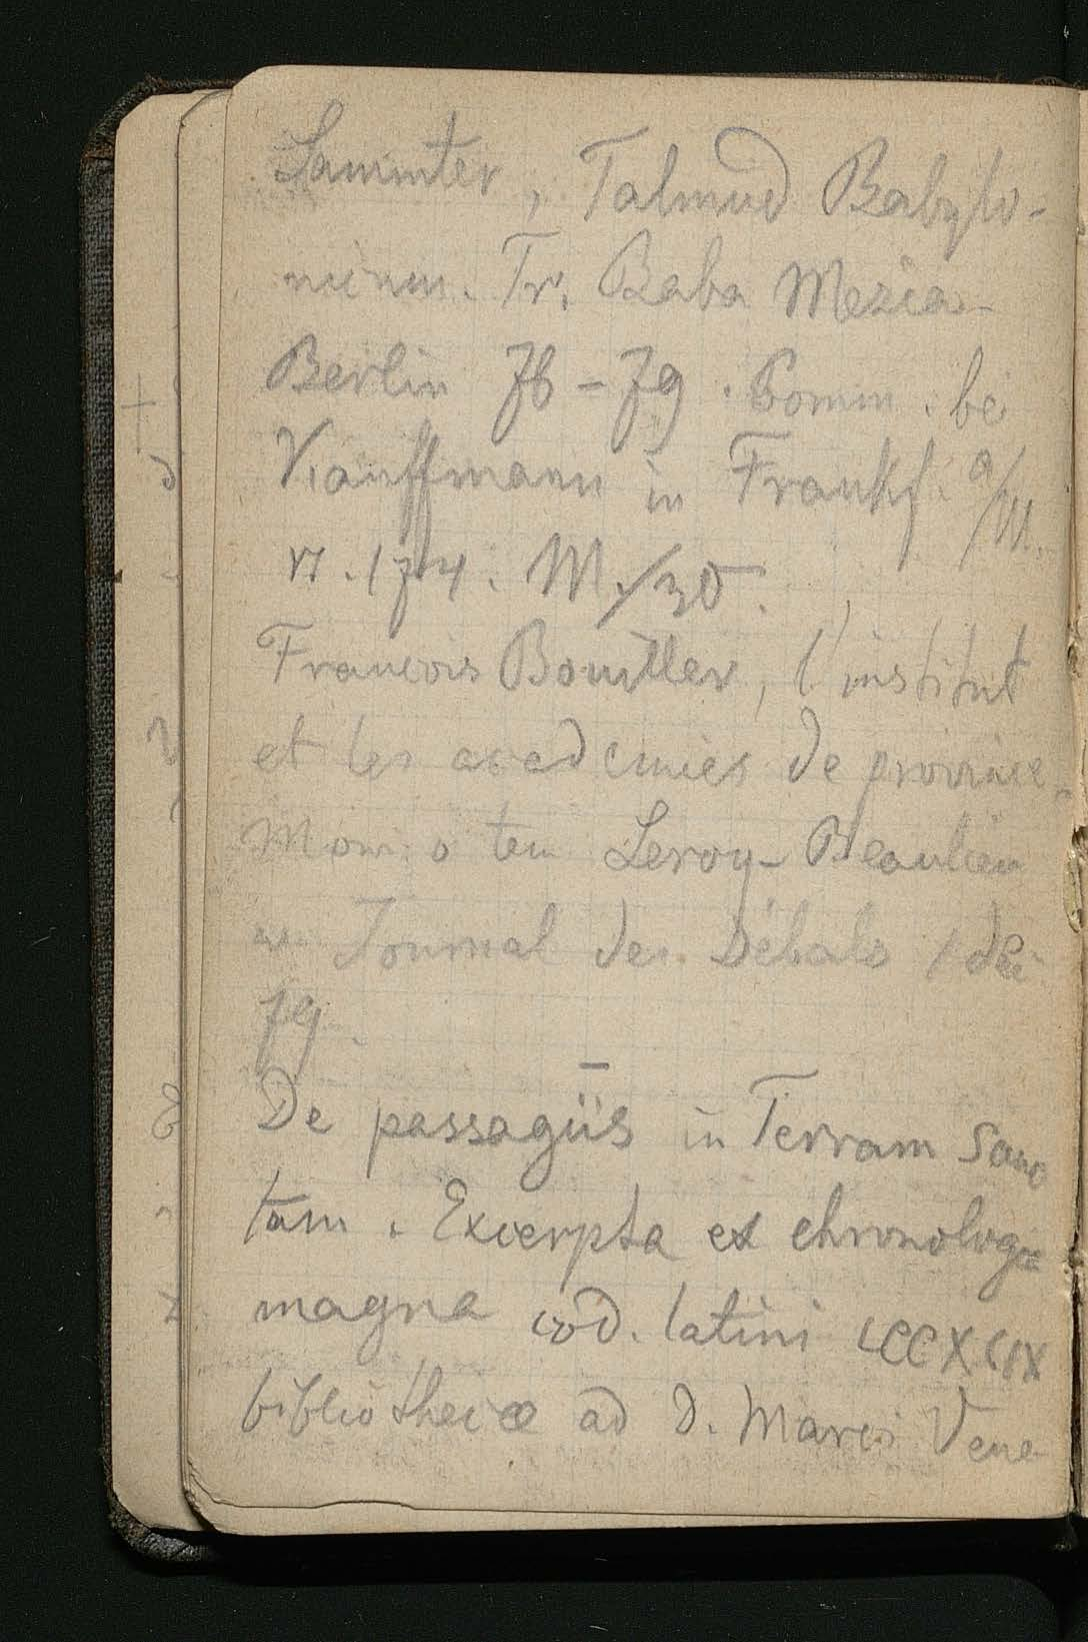 Sammter, Talmud Babylo-
nicum. Tr. Baba Mezia-
Berlin 76-79. Comm. bei
Kauffmann in Frankf. a/M.
VI. 174. M./30.
Francois Bouiller, l'institut
et les academies de province.
Mowi o tem Leroy-Beaulieu
w Journal des Débats
79.
De passagiis in Terram Sanc
tam. Excerpta ex chronologia
magna cod. latini CCCXCIX
bibliothecæ ad d. Marci Vene